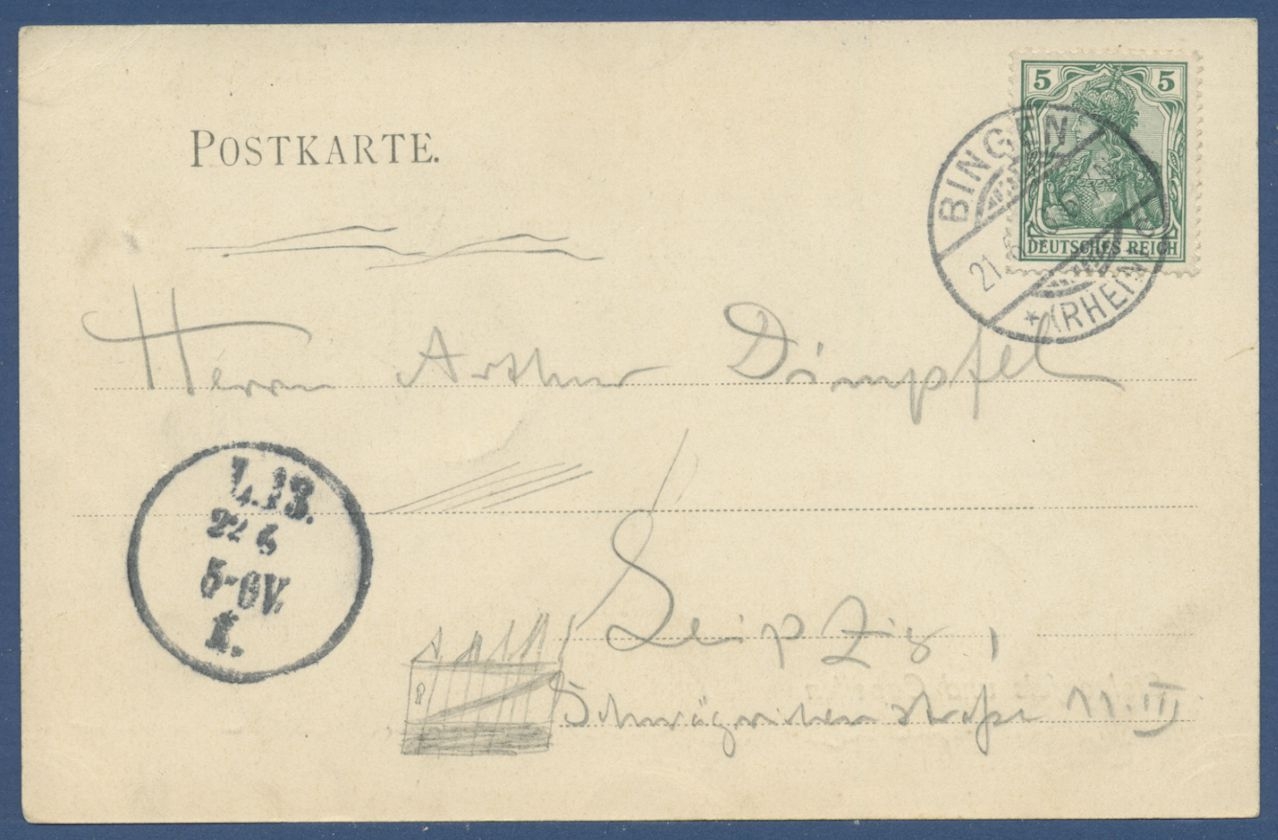 POSTKARTE.
5 5
DEUTSCHES REICH
BINGEN
21.
* (RHEIN)
Herrn Arthur Dimpfel
L.13.
22 6
5-6V.
1.
Leipzig,
Schwägrichenstraße 11. III